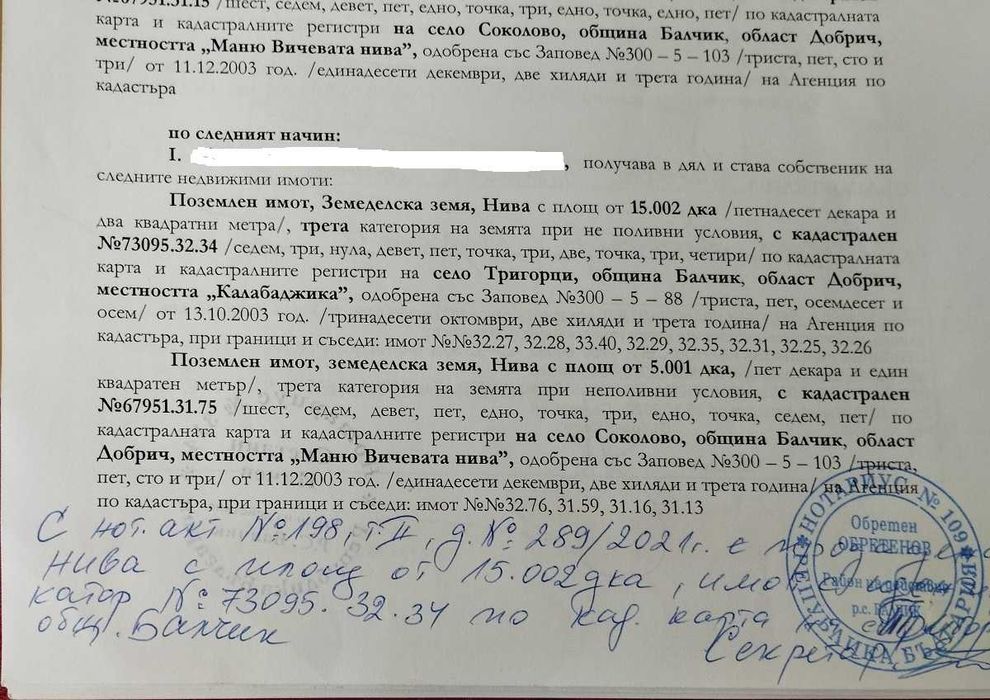 №67951.31.15 /шест, седем, девет, пет, едно, точка, три, едно, точка, едно, пет/ по кадастралната
карта и кадастралните регистри на село Соколово, община Балчик, област Добрич,
местността „Маню Вичевата нива”, одобрена със Заповед №300 – 5 – 103 /триста, пет, сто и
три/ от 11.12.2003 год. /единадесети декември, две хиляди и трета година/ на Агенция по
кадастъра
по следният начин:
I. , получава в дял и става собственик на
следните недвижими имоти:
Поземлен имот, Земеделска земя, Нива с площ от 15.002 дка /петнадесет декара и
два квадратни метра/, трета категория на земята при не поливни условия, с кадастрален
№73095.32.34 /седем, три, нула, девет, пет, точка, три, две, точка, три, четири/ по кадастралната
карта и кадастралните регистри на село Тригорци, община Балчик, област Добрич,
местността „Калабаджика”, одобрена със Заповед №300 – 5 – 88 /триста, пет, осемдесет и
осем/ от 13.10.2003 год. /тринадесети октомври, две хиляди и трета година/ на Агенция по
кадастъра, при граници и съседи: имот №№32.27, 32.28, 33.40, 32.29, 32.35, 32.31, 32.25, 32.26
Поземлен имот, земеделска земя, Нива с площ от 5.001 дка, /пет декара и един
квадратен метър/, трета категория на земята при неполивни условия, с кадастрален
№67951.31.75 /шест, седем, девет, пет, едно, точка, три, едно, точка, седем, пет/ по
кадастралната карта и кадастралните регистри на село Соколово, община Балчик, област
Добрич, местността „Маню Вичевата нива”, одобрена със Заповед №300 – 5 – 103 /триста,
пет, сто и три/ от 11.12.2003 год. /единадесети декември, две хиляди и трета година/ на Агенция
по кадастъра, при граници и съседи: имот №№32.76, 31.59, 31.16, 31.13
С нот. акт №198, т. II, д. №289/2021г. е
нива с площ от 15.002дка,
катор №73095.32.34 по кад. карта
общ. Балчик
Секретар
НОТАРИУС № 109
Обретен
ОБРЕТЕНОВ
Район на действие
р.с. БАЛЧИК
РЕПУБЛИКА БЪЛГАРИЯ